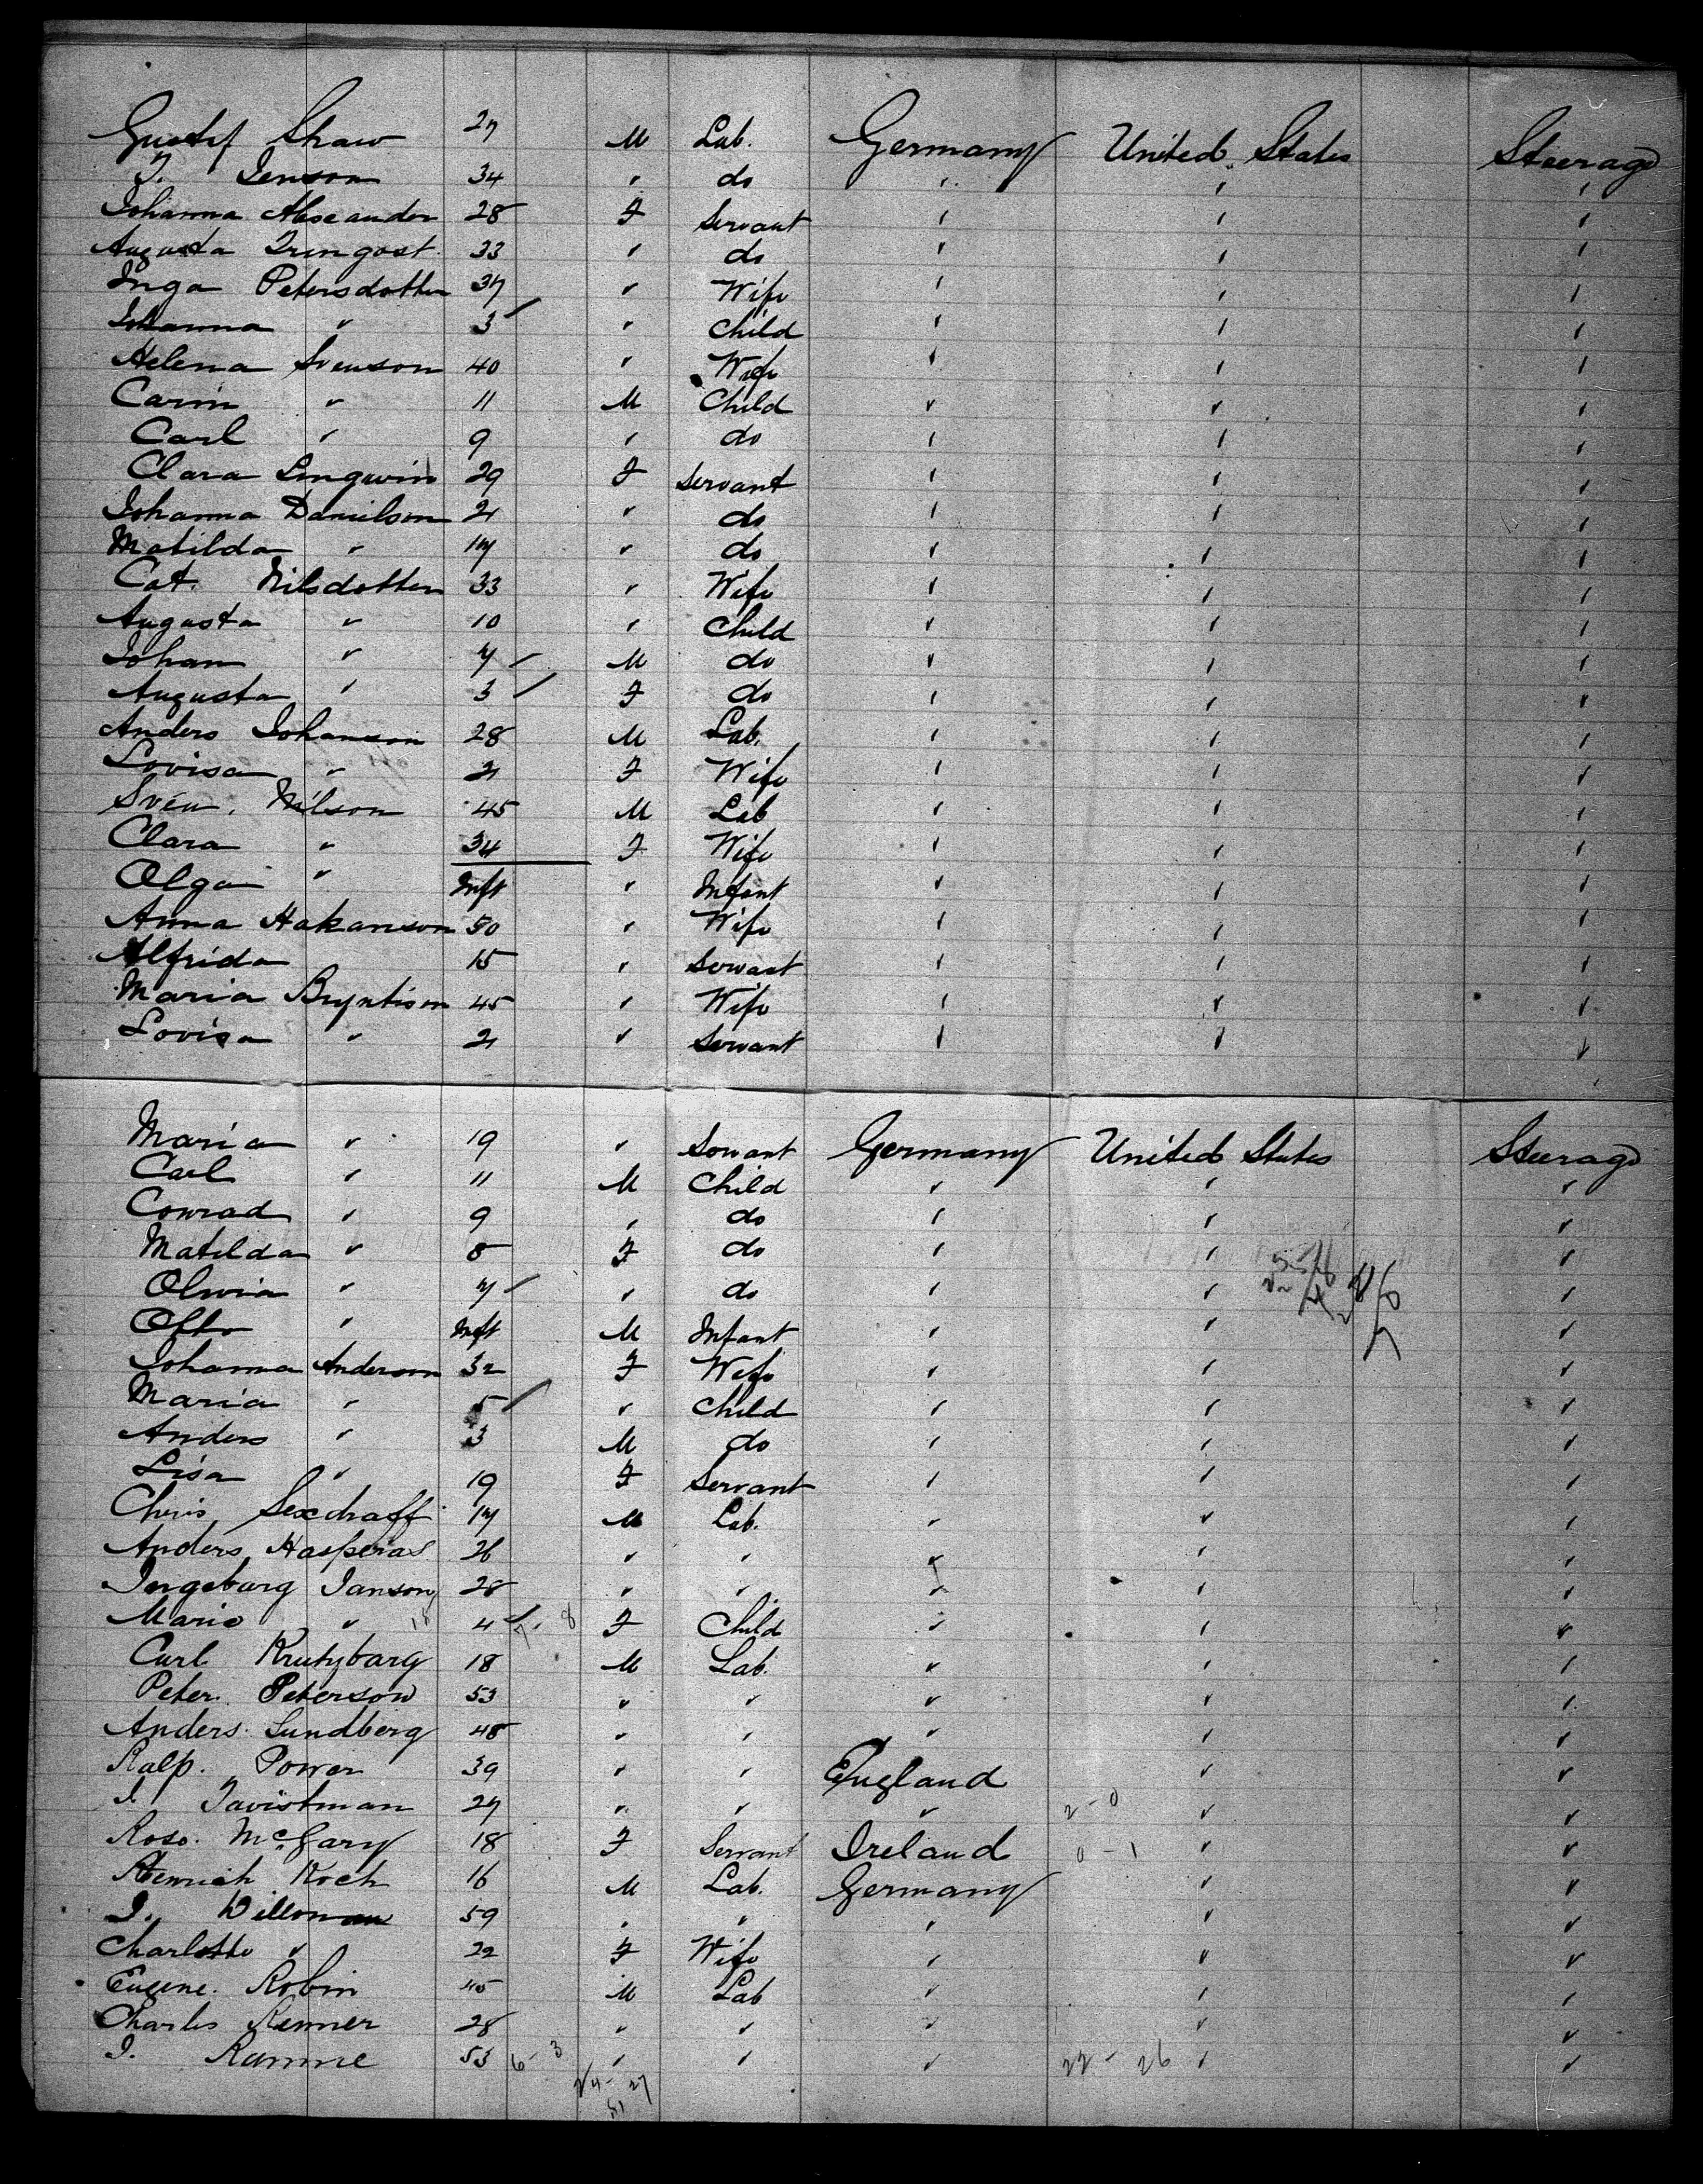 Gustof Shaw 27 M Lab. Germany United States Steerage
J. Jenson 34 " do " " "
Johanna Alexander 28 F Servant " " "
Augusta 33 " do " " "
Inga Petersdotter 37 " Wife " " "
Johanna " 3 " Child " " "
Helena Svenson 40 " Wife " " "
Carin " 11 M Child " " "
Carl " 9 " do " " "
Clara 29 F Servant " " "
Johanna Danielson 21 " do " " "
Matilda " 17 " do " " "
Cat. Nilsdotter 33 " Wife " " "
Augusta " 10 " Child " " "
Johan " 7 M do " " "
Augusta " 3 F do " " "
Anders Johanson 28 M Lab. " " "
Lovisa " 21 F Wife " " "
Sven. Nilson 45 M Lab " " "
Clara " 34 F Wife " " "
Olga " Inft " Infant " " "
Anna Hakanson 50 " Wife " " "
Alfrida 15 " Servant " " "
Maria Bryntison 45 " Wife " " "
Lovisa " 21 " Servant " " "
Maria " 19 " Servant Germany United States Steerage
Carl " 11 M Child " " "
Conrad " 9 " do " " "
Matilda " 8 F do " " "
Olivia " 7 " do " " "
Otto " Inft M Infant " " "
Johanna Anderson 32 F Wife " " "
Maria " 5 " Child " " "
Anders " 3 M do " " "
Lisa " 19 F Servant " " "
Chris 17 M Lab. " " "
Anders Hasperas 26 " " " " "
Ingeborg Janson 28 " " " " "
Marie " 4 F Child " " "
Carl 18 M Lab. " " "
Peter. Peterson 53 " " " " "
Anders. Lundberg 48 " " " " "
Ralp. Power 39 " " England " "
J. Tavistman 27 " " " 2 - 0 " "
Rose. McGary 18 F Servant Ireland 0 - 1 " "
Heinrich Koch 16 M Lab. Germany " "
J. Willoman 59 " " " " "
Charlotte " 22 F Wife " " "
Eugene. Robin 45 M Lab " " "
Charles Renner 28 " " " " "
J. Ramme 53 6 - 3 " " " 22 - 26 " "
24 - 27
51